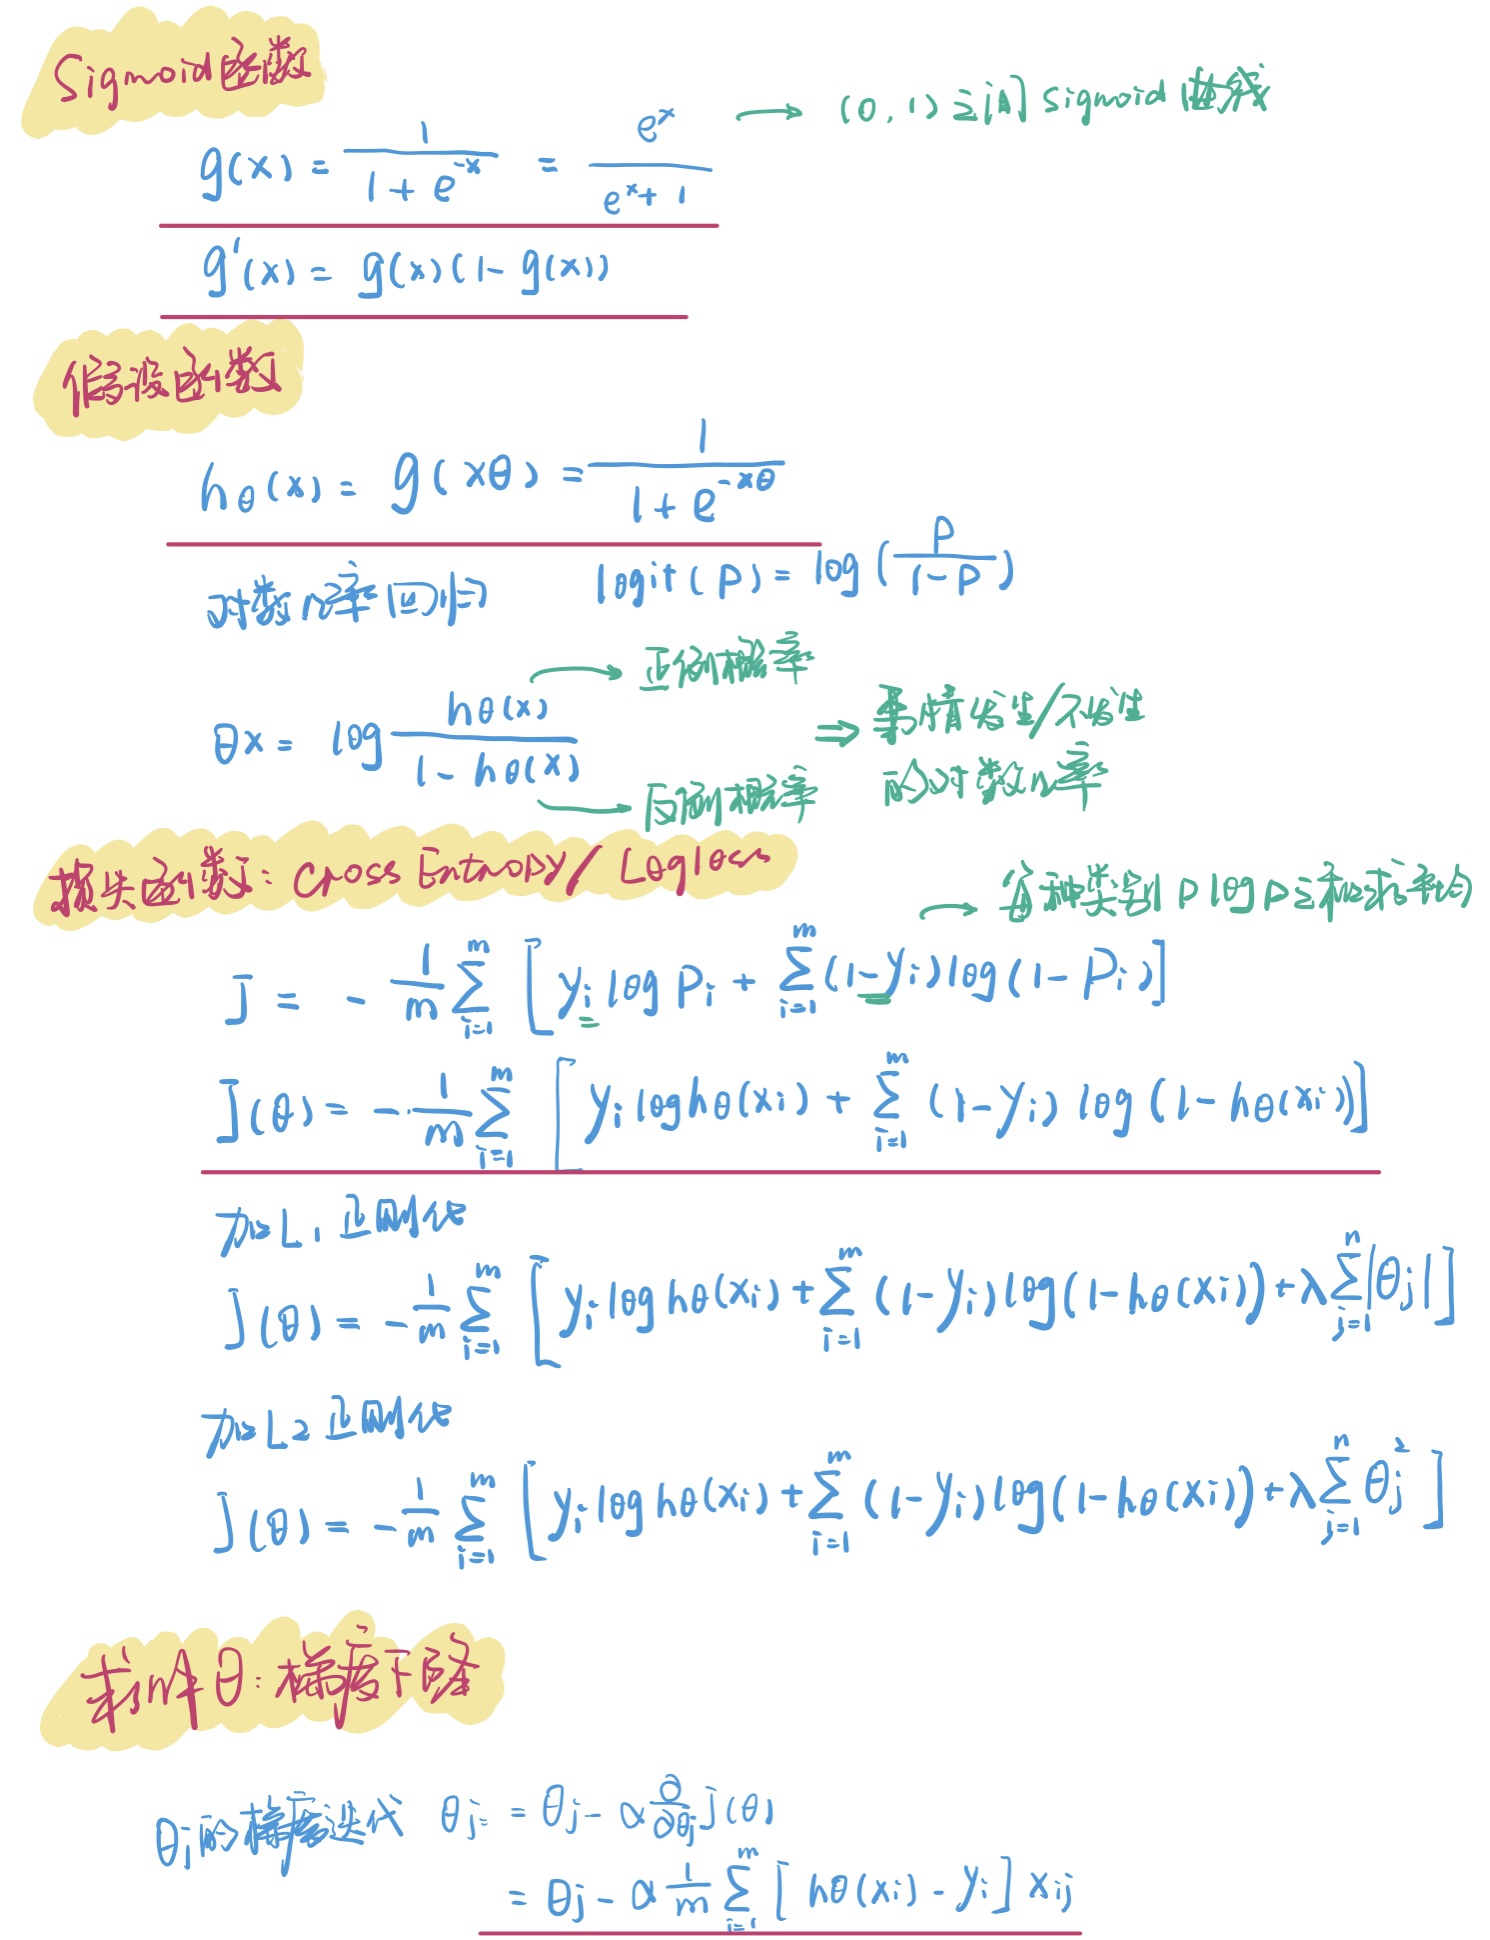 Sigmoid函数
g(x) = 1/(1+e^{-x}) = e^x/(e^x+1) → (0,1)之间sigmoid曲线
g'(x) = g(x)(1-g(x))
假设函数
h_θ(x) = g(xθ) = 1/(1+e^{-xθ})
对数几率回归 logit(P) = log(P/(1-P))
θx = log h_θ(x)/(1-h_θ(x)) → 正例概率 → 反例概率 ⇒ 事情发生/不发生
的对数几率
损失函数: Cross Entropy/Logloss
→ 各种类别 P log P之和求平均
J = -1/m Σ_{i=1}^{m} [y_i log P_i + Σ_{i=1}^{m} (1-y_i) log(1-P_i)]
J(θ) = -1/m Σ_{i=1}^{m} [y_i log h_θ(x_i) + Σ_{i=1}^{m} (1-y_i) log(1-h_θ(x_i))]
加L1正则化
J(θ) = -1/m Σ_{i=1}^{m} [y_i log h_θ(x_i) + Σ_{i=1}^{m} (1-y_i) log(1-h_θ(x_i)) + λ Σ_{j=1}^{n} |θ_j|]
加L2正则化
J(θ) = -1/m Σ_{i=1}^{m} [y_i log h_θ(x_i) + Σ_{i=1}^{m} (1-y_i) log(1-h_θ(x_i)) + λ Σ_{j=1}^{n} θ_j^2]
求解θ: 梯度下降
θ_j的梯度迭代 θ_j := θ_j - α ∂/∂θ_j J(θ)
= θ_j - α 1/m Σ_{i=1}^{m} [h_θ(x_i) - y_i] x_{ij}